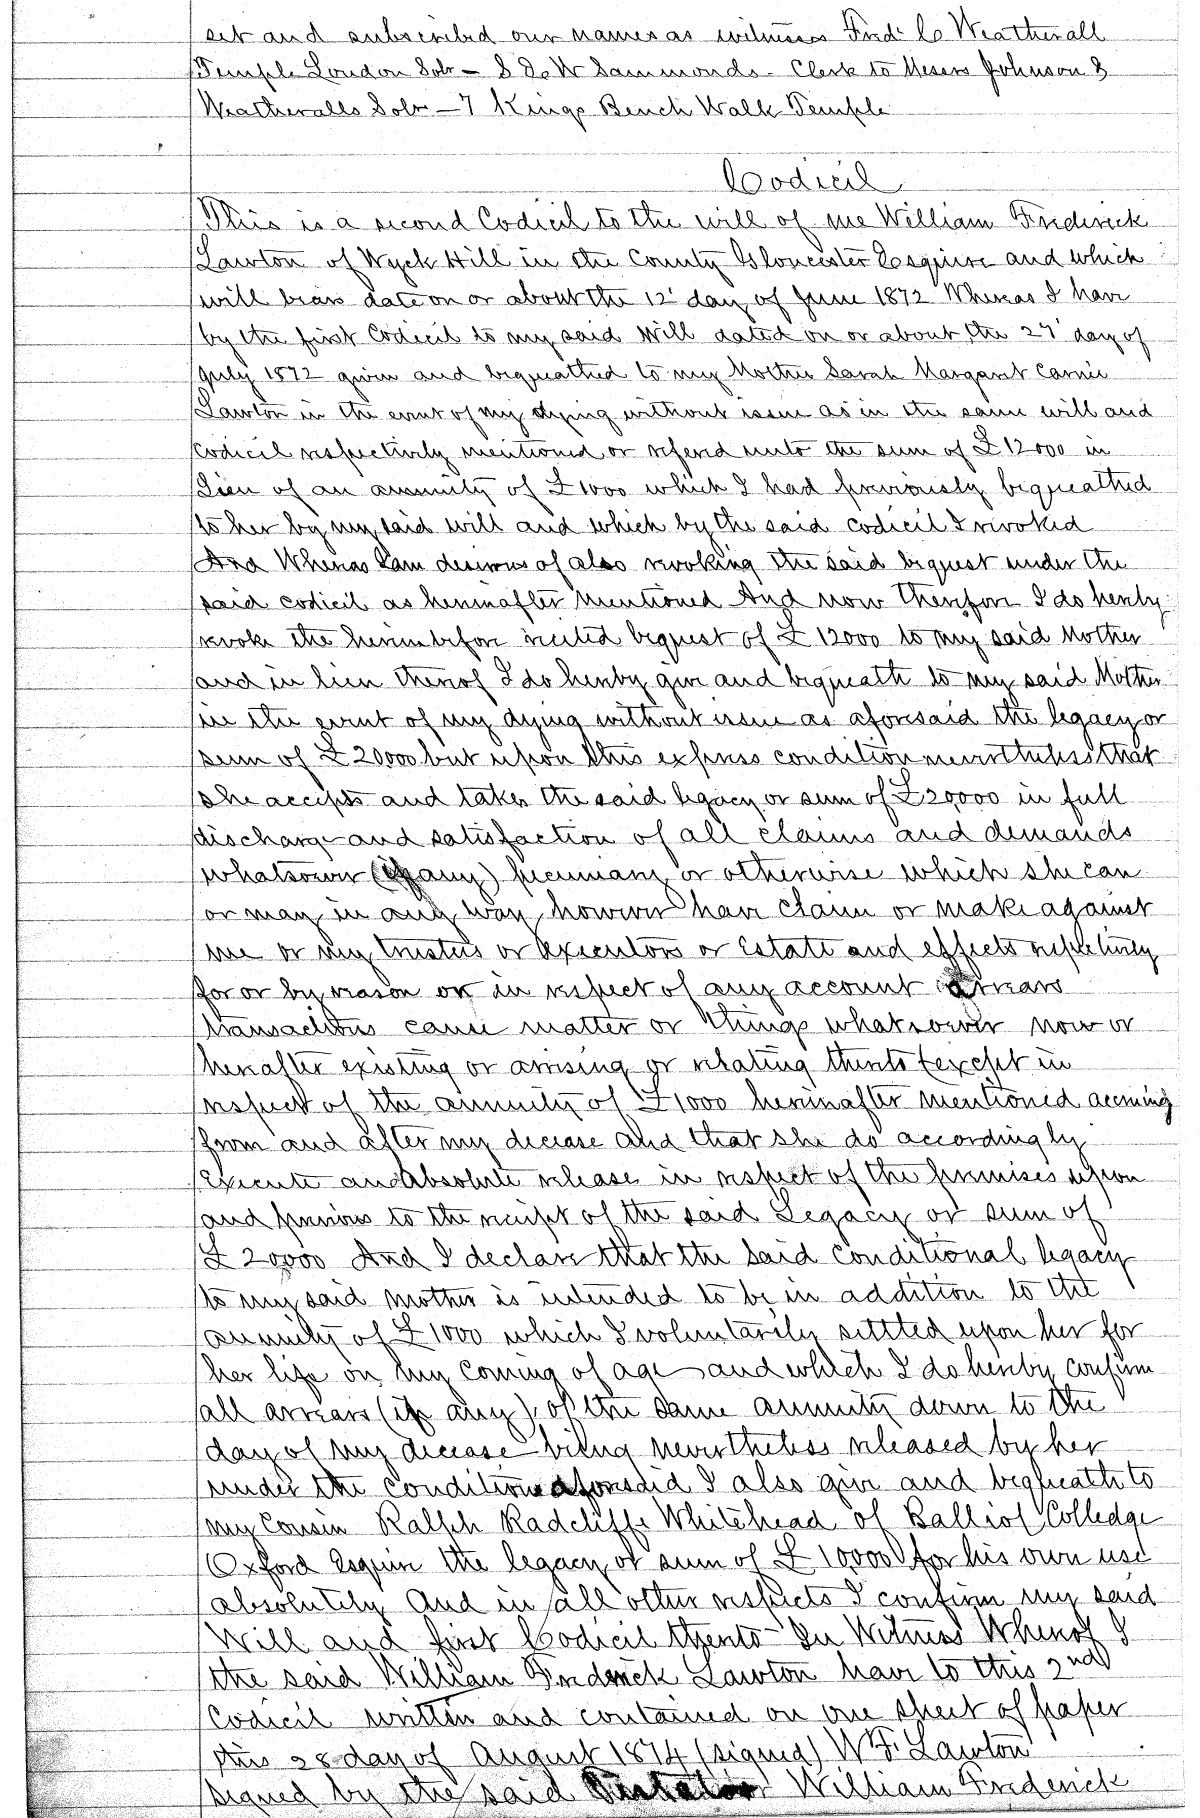 set and subscribed our names as witnesses Fredk C Weatherall
Temple London Solr - S De W Sammonds - Clerk to Messrs Johnson &
Weatheralls Solrs - 7 Kings Bench Walk Temple
Codicil
This is a second Codicil to the will of me William Frederick
Lawton of Wyck Hill in the County Gloucester Esquire and which
will bears date on or about the 12 day of June 1872 Whereas I have
by the first Codicil to my said Will dated on or about the 27 day of
July 1872 given and bequeathed to my Mother Sarah Margaret
Lawton in the event of my dying without issue as in the same will and
Codicil respectively mentioned or refered unto the sum of £12000 in
Lieu of an annuity of £1000 which I had previously bequeathed
to her by my said will and which by the said codicil I revoked
And Whereas I am desirous of also revoking the said bequest under the
said codicil as hereinafter mentioned And now Therefore I do hereby
revoke the hereinbefore recited bequest of £12000 to my said Mother
and in lieu thereof I do hereby give and bequeath to my said Mother
in the event of my dying without issue as aforesaid the legacy or
sum of £20000 but upon this express condition nevertheless that
she accepts and takes the said legacy or sum of £20,000 in full
discharge and satisfaction of all claims and demands
whatsoever (if any) pecuniary or otherwise which she can
or may in any way however have claim or make against
me or my trustees or Executors or Estate and effects respectively
for or by reason or in respect of any account arrears
transactions cause matter or things whatsoever now or
hereafter existing or arising or relating thereto (except in
respect of the annuity of £1000 hereinafter mentioned accruing
from and after my decease and that she do accordingly
Execute an absolute release in respect of the premises upon
and previous to the receipt of the said Legacy or sum of
£20,000 And I declare that the said conditional legacy
to my said mother is intended to be in addition to the
annuity of £1000 which I voluntarily settled upon her for
her life on my coming of age and which I do hereby confirm
all arrears (if any) of the same annuity down to the
day of my decease being nevertheless released by her
under the condition aforesaid I also give and bequeath to
my Cousin Ralph Radcliffe Whitehead of Balliol Colledge
Oxford Esquire the legacy or sum of £10,000 for his own use
absolutely And in all other respects I confirm my said
Will and first Codicil thereto In Witness Whereof I
the said William Frederick Lawton have to this 2nd
Codicil written and contained on one sheet of paper
this 28 day of August 1874 (signed) W F. Lawton
signed by the said Testator William Frederick